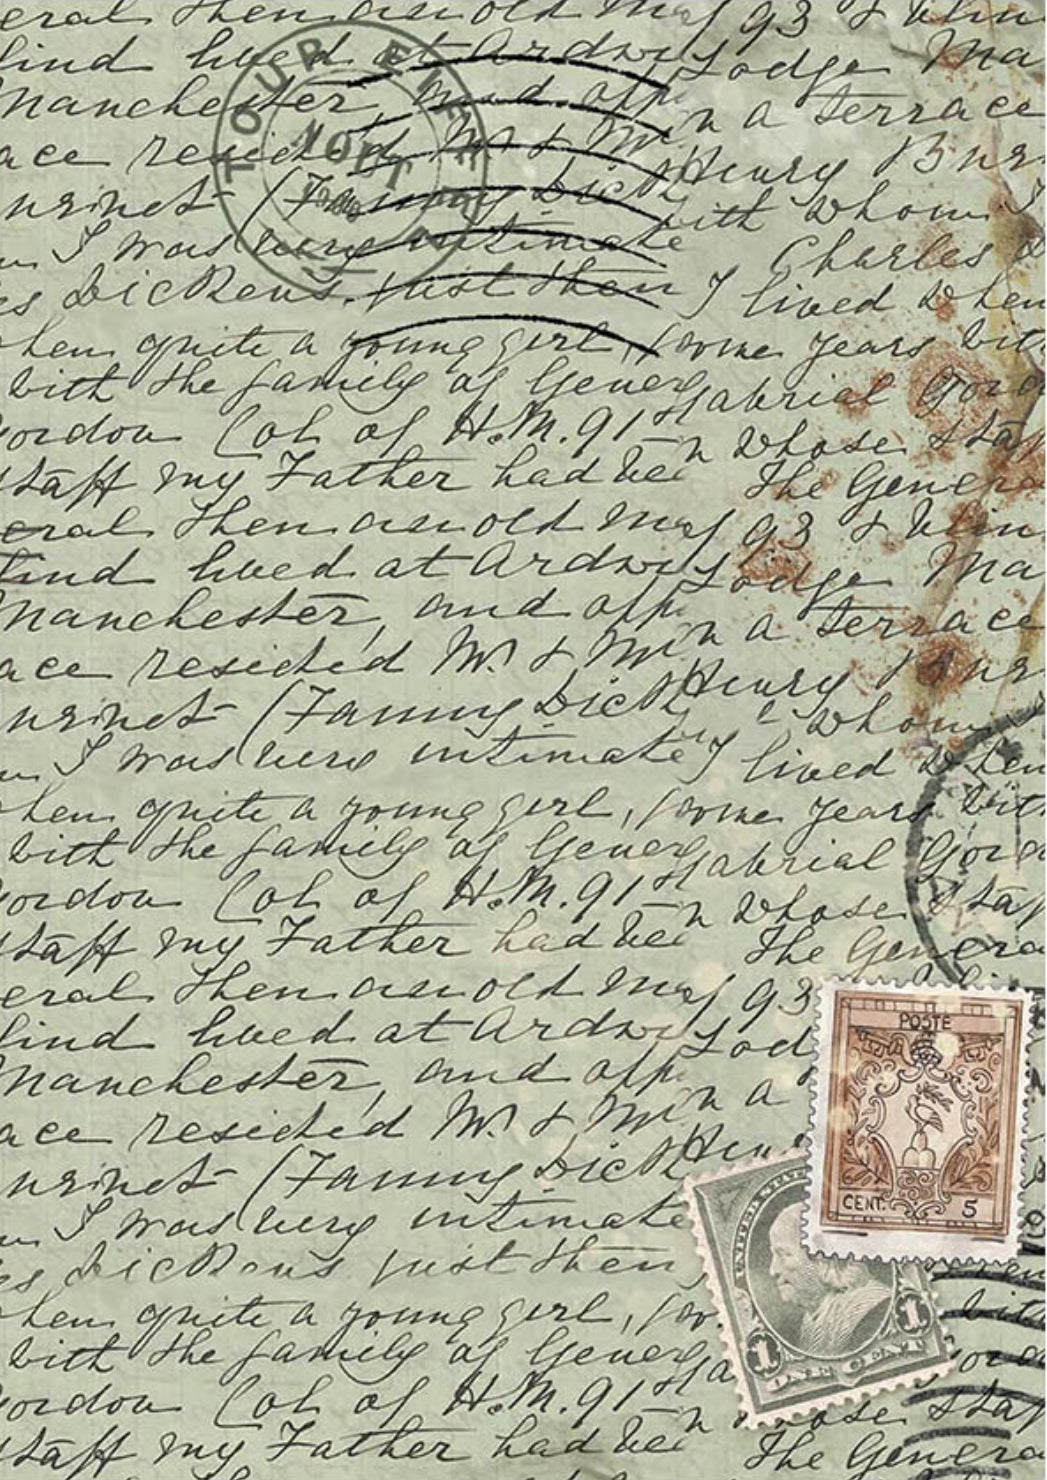 eral then an old man of 93 & blin
lind lived at Ardwi Lodge Ma
Manchester, and opp in a terrace
ace resided Mr & Mr Henry Bur
urnet (Fanny Dick with whom I
I was very intimate Charles D
es Dickens just then I lived when
hen quite a young girl, some years wit
with the family of Gener Gabrial Gord
Gordon Col of H.M. 91st on whose staf
staff my Father had bee The Genera
eral then an old man of 93 & blin
lind lived at Ardwi Lodge Ma
Manchester, and opp in a terrace
ace resided Mr & Mr Henry Bur
urnet (Fanny Dick whom
I was very intimate I lived when
hen quite a young girl, some years wit
with the family of Gener Gabrial Gord
Gordon Col of H.M. 91st on whose staf
staff my Father had bee The Genera
eral then an old man of 93
lind lived at Ardwi Lod
Manchester, and opp in a
ace resided Mr & Mr Hen
urnet (Fanny Dick
I was very intimate
es Dickens just then
hen quite a young girl, so wit
with the family of Gener Ga
Gordon Col of H.M. 91st on whose staf
staff my Father had bee The Genera
TOUR EIFFEL
POSTE
CENT. 5
1 1